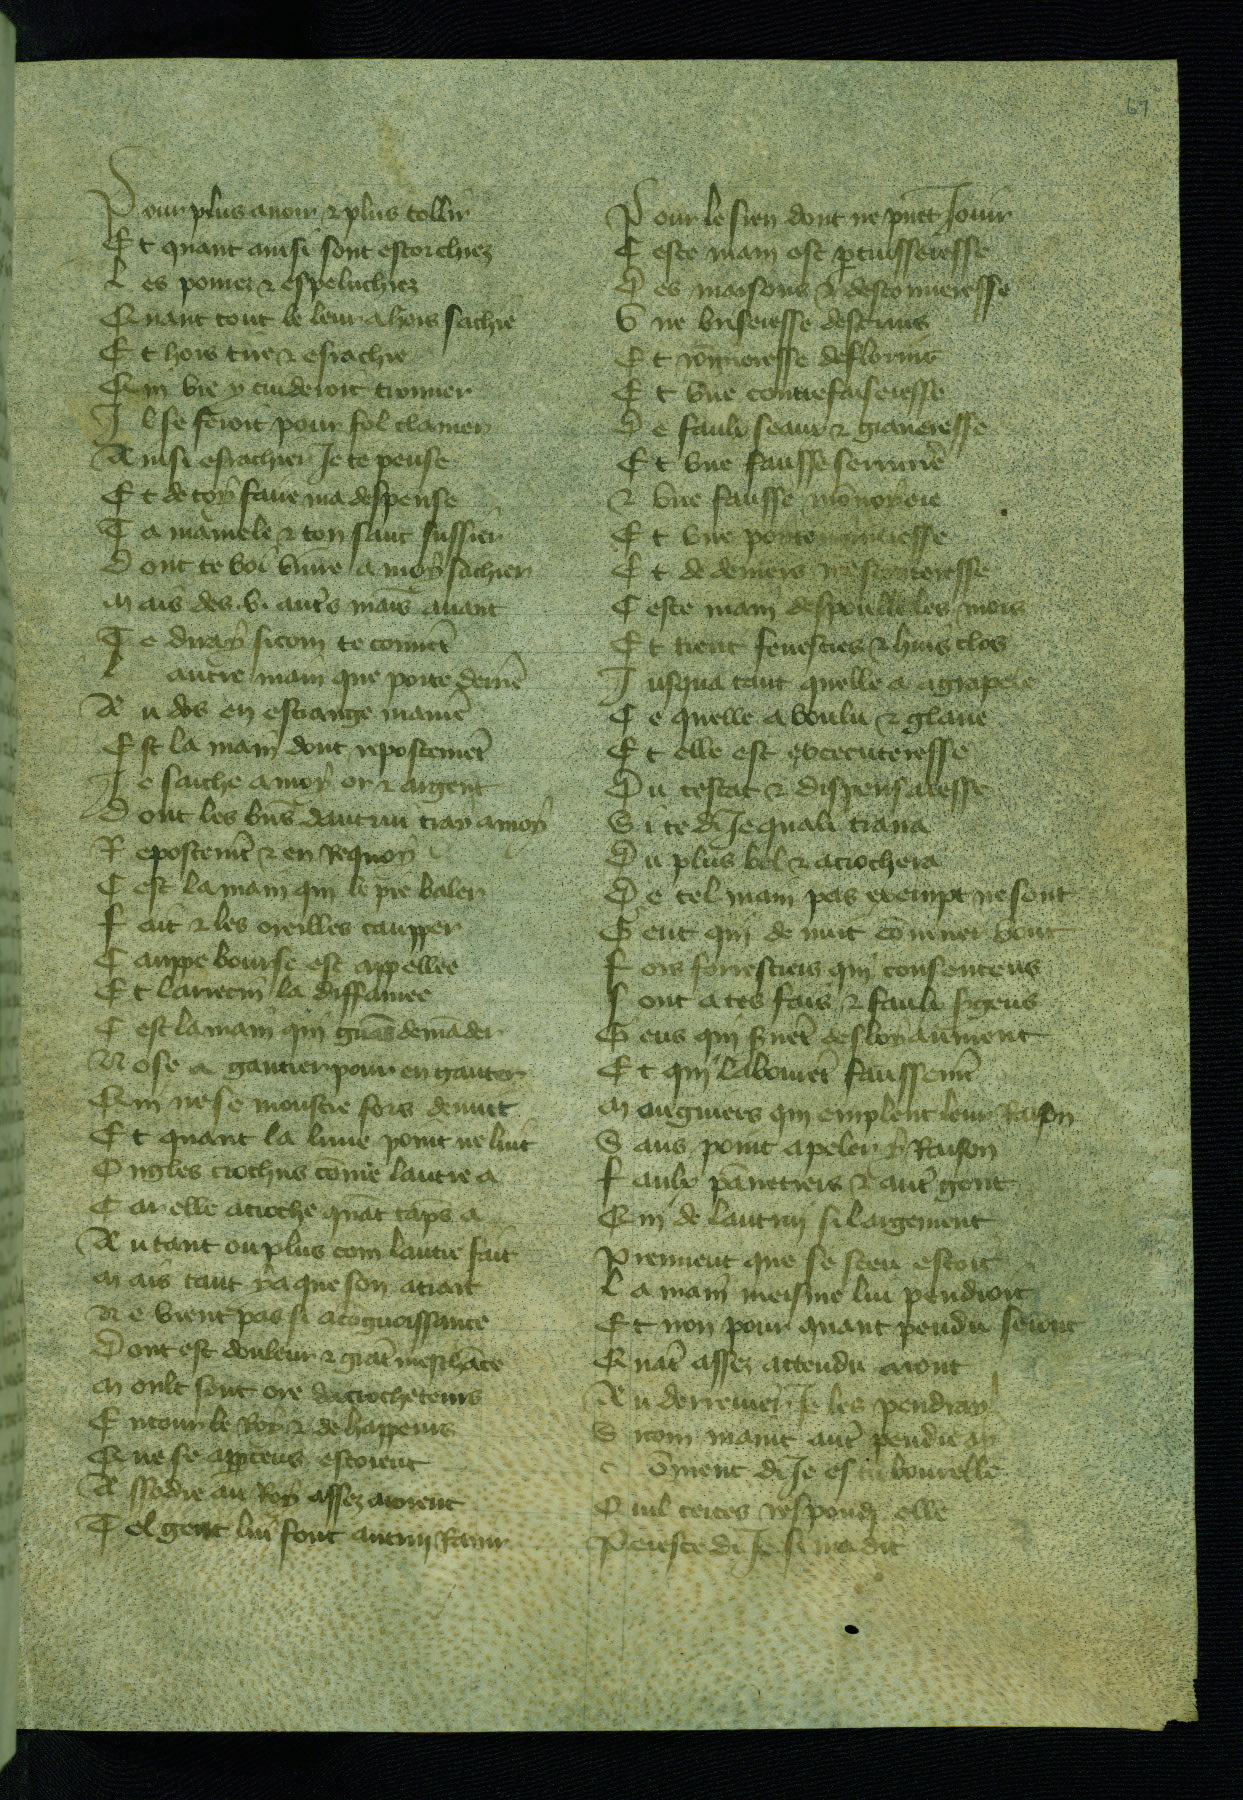 67
Pour plus auoir & plus tollir
Et quant ainsi sont escorchiez
Les poures & espeluchiez
Quant tout le leur a hors sachie
Et hors tire & esrachie
Qui vie y cuideroit trouuer
Il se feroit pour fol clamer
Ainsi esrachier Je te pense
Et de toy faire ma despense
Ta mamele & ton sanc sussier
Dont te voi viure a moy sachier
Mais des .vi. autˢ mais auant
Te diray si com te conuēt
Lautre main que porte derriē
Au dos en estrange maniē
Est la main dont repostemēt
Je saiche a moy or & argent
Dont les biēs dautrui tray a moy
Repostemēt & en Requoy
Cest la main qui le pie baler
Fait & les oreilles caupper
Cauppe bourse est appellee
Et larrecin la diffamee
Cest la main qui guās demāder
Nose a gantier pour en ganter
Qui ne se moustre fors de nuit
Et quant la lune point ne luit
Ongles crochus cōme lautre a
Car elle acroche quāt tāps a
Autant ou plus com lautre fait
Mais tant y a que son atrait
Ne vient pas si a cōgnoissance
Dont est douleur & grāt meschāce
Moult sont ore dacrocheteurs
Entour le Roy & de happeurs
Que se apperceus estoient
Assodre au Roy assez auroient
Tel gent lui font autrui Rauir
Pour le sien dont ne puet Jouir
Ceste main est ꝑtuisseresse
Des maisons & descouueresse
Vne briseresse descrins
Et rōgneresse de florins
Et vne contrefaiseresse
De faulx seaux & graueresse
Et vne fausse serruriē
& vne fausse mōnoyere
Et vne
Et de deniers mescōteresse
Ceste main despoulle les mors
Et tient fenestres & huis clos
Jusqua tant quelle a agrapele
Ce quelle a voulu & glane
Et elle est executeresse
Du testat & dispensaresse
Si te di Je quali traira
Du plus bel & acrochera
De tel main pas exempt ne sont
Gent qui de nuit cōniner vont
Fors forrestiers qui consenteus
Sont a tes fais & faulx sˀgens
Gens qui sˀuēt desloyaument
Et qui labouiēt faussemēt
Mougniers qui emplent leur Raison
Sans point apeler y Raison
Faulx pānetiers & autˀ gent
Qui de lautrui si largement
Prennent que se sceu estoit
La main meisme lui pendroit
Et non pour quant pendu seront
Quāt assez attendu aront
Au derrenier Je les pendray
Si com maint autˀ pendu ay
Cōment di Je es tu bourelle
Ouil certes respondi elle
Preste di Je si ma dit